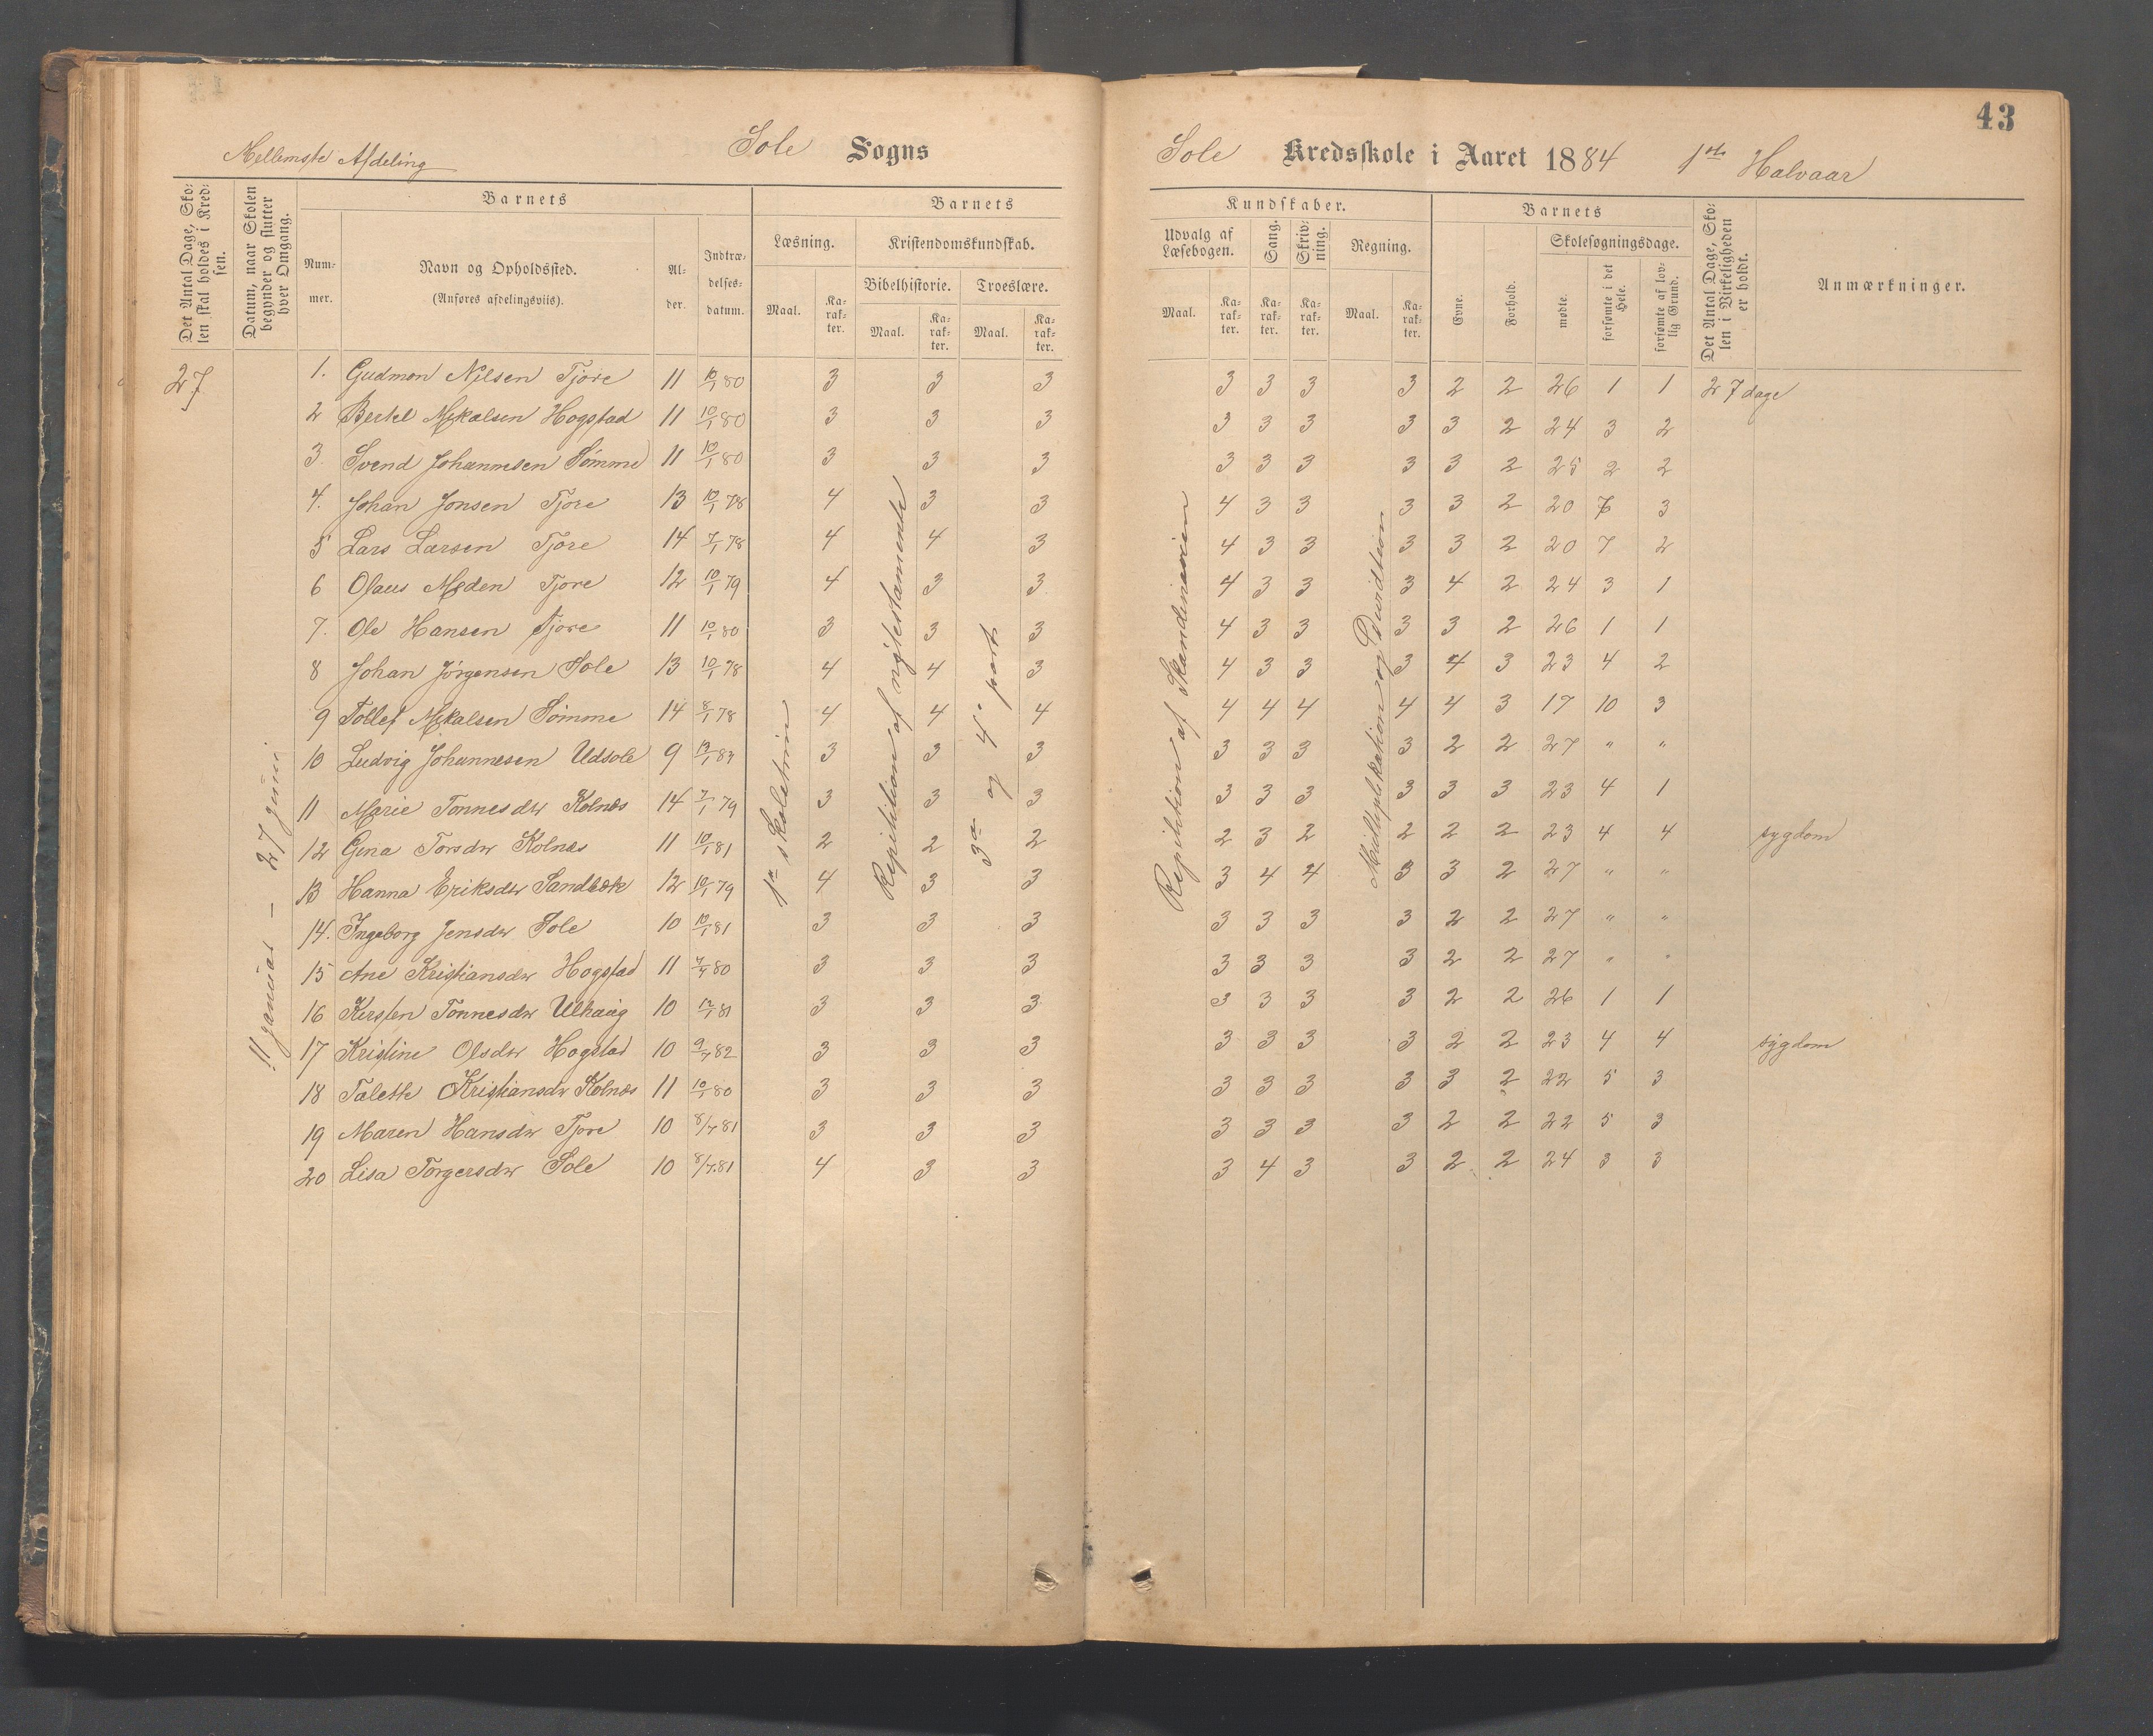 43
Mellemste Afdeling
Sole Sogns
Sole Kredsskole i Aaret 1884 1ste Halvaar
Det Antal Dage, Skolen skal holdes i Kredsen.
Datum, naar Skolen begynder og slutter hver Omgang.
Barnets
Nummer.
Navn og Opholdssted.
(Anføres afdelingsviis).
Alder.
Indtrædelsesdatum.
Barnets
Læsning.
Maal.
Karakter.
Kristendomskundskab.
Bibelhistorie.
Maal.
Karakter.
Troeslære.
Maal.
Karakter.
Kundskaber.
Udvalg af Læsebogen.
Maal.
Karakter.
Sang.
Karakter.
Skrivning.
Karakter.
Regning.
Maal.
Karakter.
Barnets
Evne.
Forhold.
Skolesøgningsdage.
mødte.
forsømte i det Hele.
forsømte af lovlig Grund.
Det Antal Dage, Skolen i Virkeligheden er holdt.
Anmærkninger.
27 1. Gudmon Nilsen Tjore 11 10/1 80 3 3 3 3 3 3 3 2 2 26 1 1 27 dage
2 Bertel Mikalsen Hogstad 11 10/1 80 3 3 3 3 3 3 3 3 2 24 3 2
3. Svend Johannesen Sömme 11 10/1 80 3 3 3 3 3 3 3 3 2 25 2 2
4. Johan Jonsen Tjore 13 10/1 78 4 3 3 4 3 3 3 3 2 20 7 3
5 Lars Larsen Tjore 14 7/1 78 4 4 3 4 3 3 3 3 2 20 7 2
6 Olaus Meden Tjore 12 10/1 79 4 3 3 4 3 3 3 4 2 24 3 1
7. Ole Hansen Tjore 11 10/1 80 3 3 3 4 3 3 3 3 2 26 1 1
8 Johan Jörgensen Sole 13 10/1 78 4 4 3 4 3 3 3 4 3 23 4 2
9 Tollef Mikalsen Sömme 14 8/1 78 4 4 4 4 4 4 4 4 3 17 10 3
10 Ludvig Johannesen Udsole 9 3 3 3 3 3 3 3 2 2 27 " "
11 Marie Tonnesdtr Kolnes 14 7/1 79 3 3 3 3 3 3 3 3 3 23 4 1
12 Gina Torsdtr Kolnes 11 10/1 81 2 2 2 2 3 2 2 2 2 23 4 4 sygdom
13 Hanna Eriksdtr Sandbæk 12 10/1 79 4 3 3 3 4 4 3 3 2 27 " "
14. Ingeborg Jensdtr Sole 10 10/1 81 3 3 3 3 3 3 3 2 2 27 " "
15 Ane Kristiansdtr Hogstad 11 7/7 80 3 3 3 3 3 3 3 2 2 27 " "
16 Kirsten Tonnesdtr Ulhaug 10 3 3 3 3 3 3 3 2 2 26 1 1
17 Kristine Olsdtr Hogstad 10 9/7 82 3 3 3 3 3 3 3 2 2 23 4 4 sygdom
18 Talette Kristiansdtr Kolnes 11 10/1 80 3 3 3 3 3 3 3 3 2 22 5 3
19 Maren Hansdtr Tjore 10 8/7 81 3 3 3 3 3 3 3 2 2 22 5 3
20 Lisa Torgersdtr Sole 10 8/7 81 4 3 3 3 4 3 3 2 2 24 3 3
11 januar – 27 juni
1ste Skoletrin
Repitition af nytestamente
3die og 4de part
Repitition af Skandinavien
Multiplikation og Division